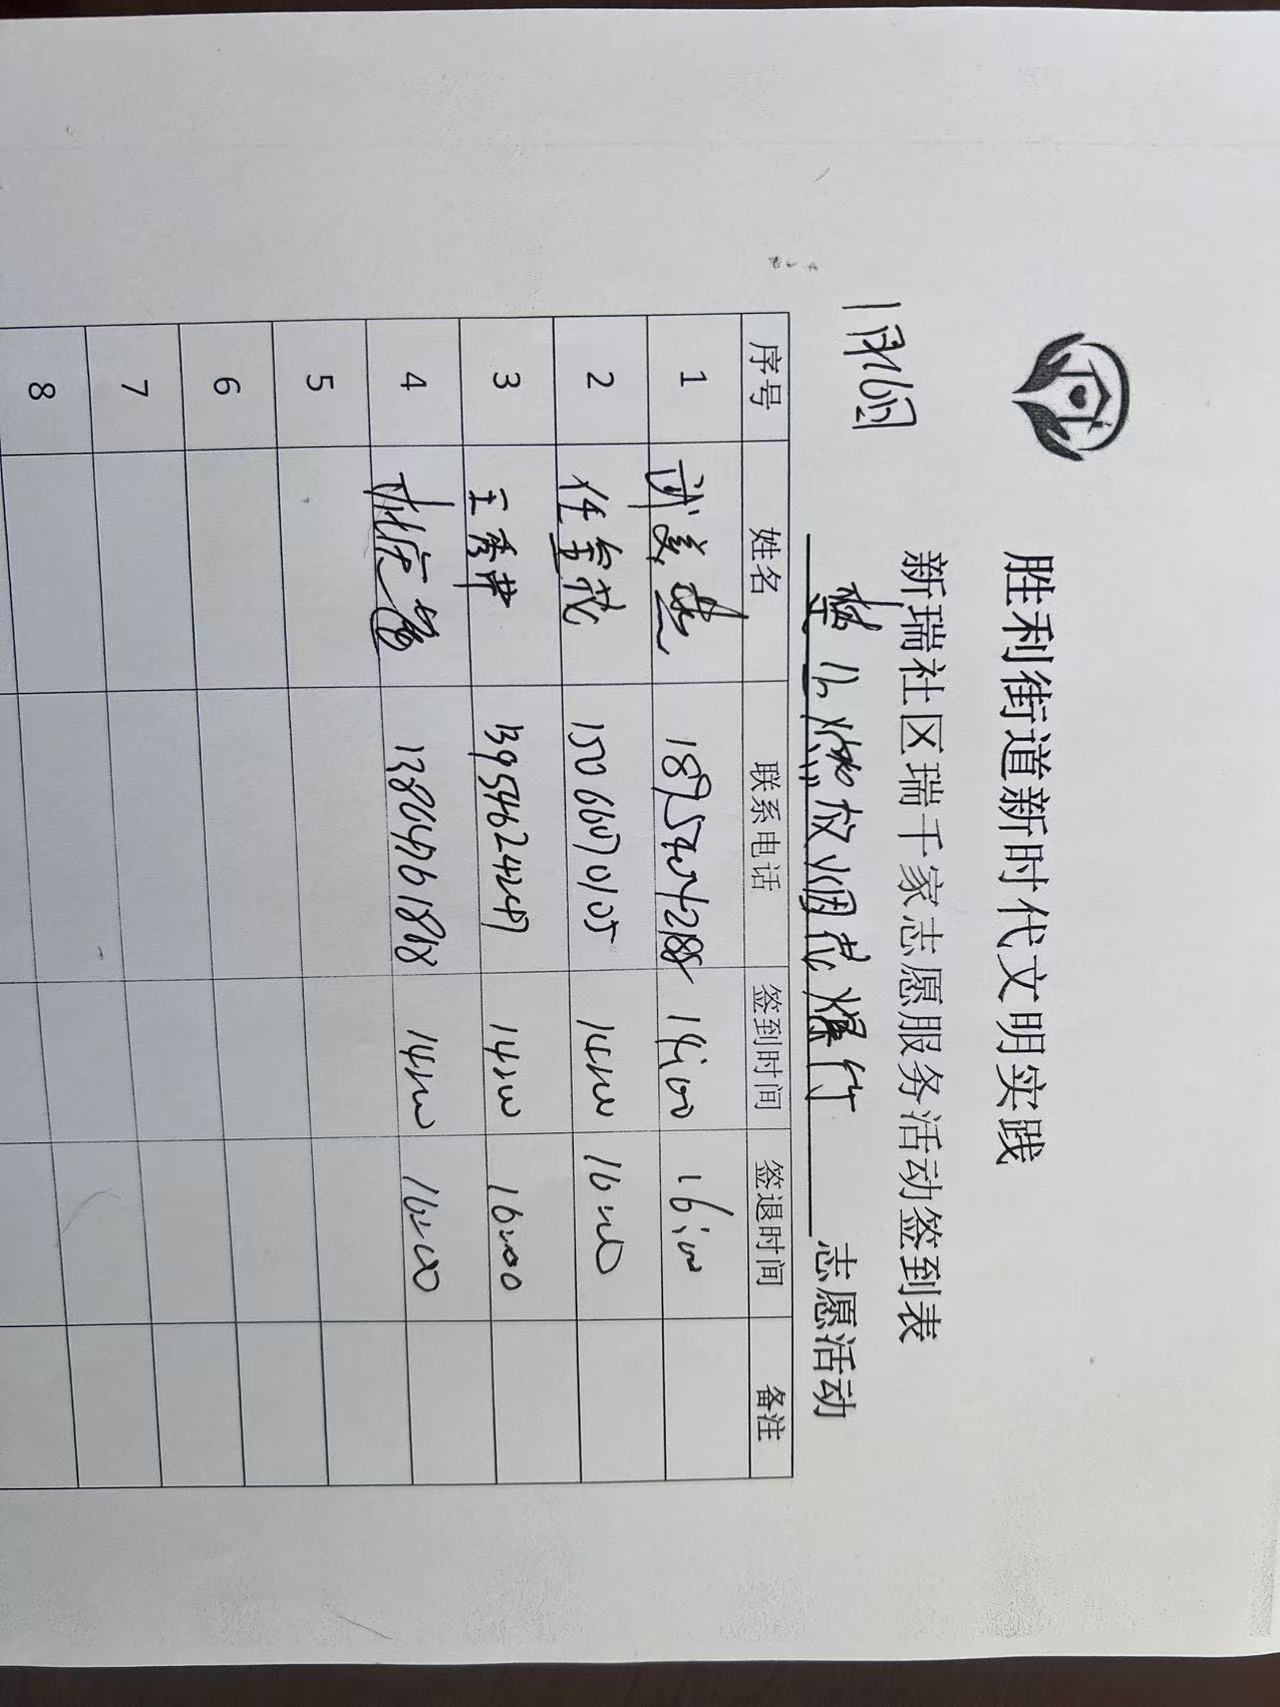 胜利街道新时代文明实践
新瑞社区瑞千家志愿服务活动签到表
1月16日 禁止燃放烟花爆竹 志愿活动
序号 姓名 联系电话 签到时间 签退时间 备注
1 武美燕 14:00 16:00
2 任金茂 15066070105 14:00 16:00
3 王秀井 13954624247 14:00 16:00
4 14:00 16:00
5
6
7
8